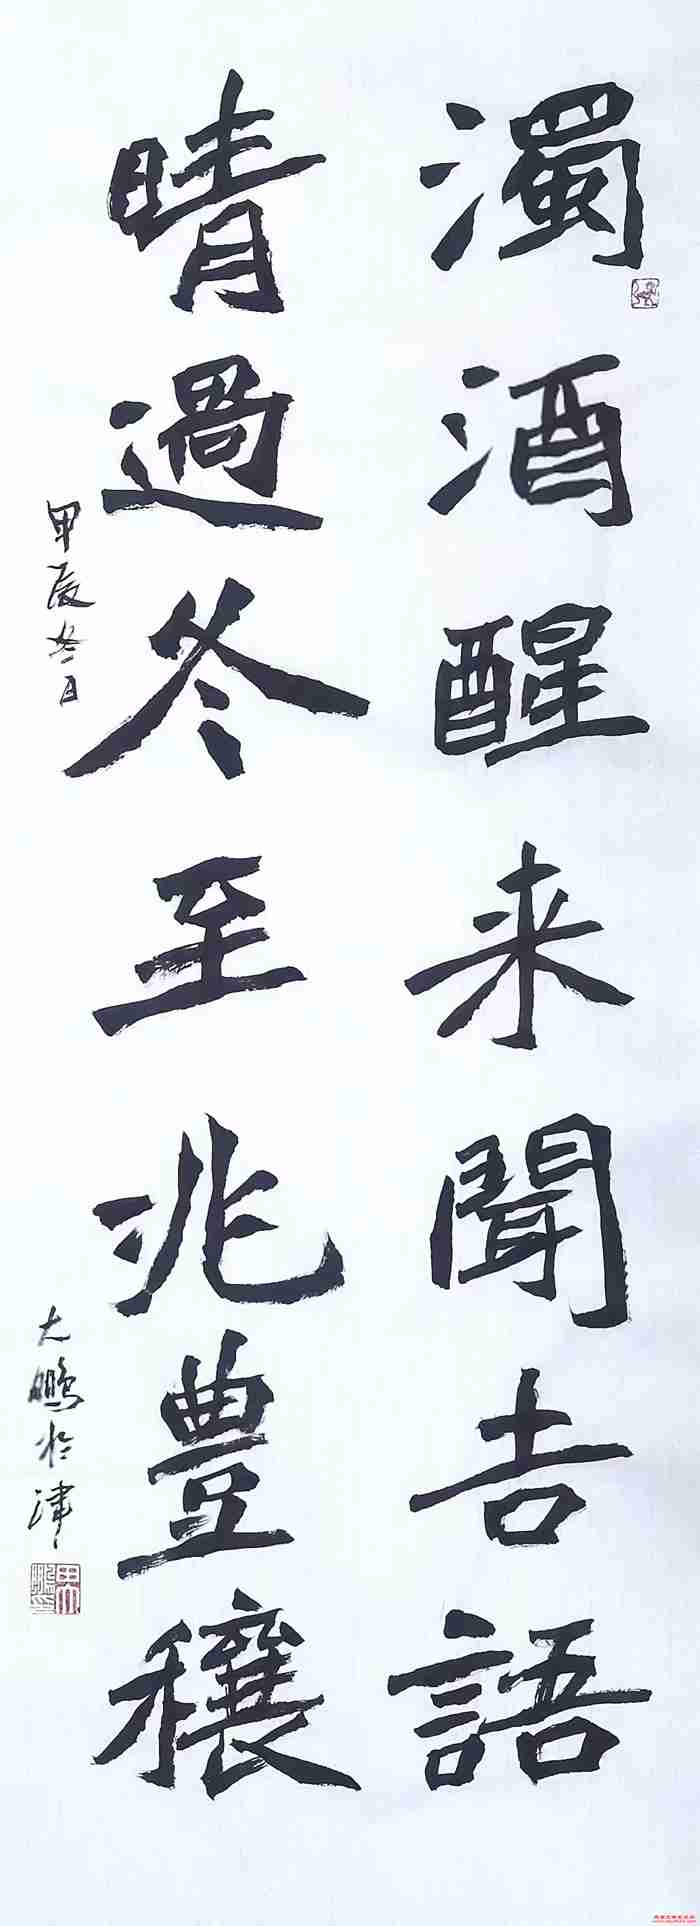 濁酒醒来聞吉語
晴過冬至兆豊穰
甲辰冬日
大鵬於津